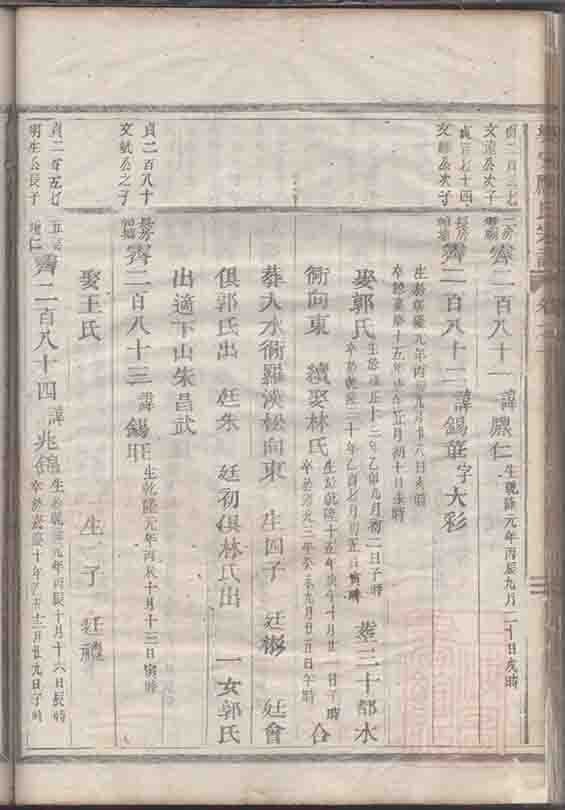 文遠公次子
齊二百八十一 諱騤仁 生乾隆元年丙辰九月二十日亥時
文 公次子
齊二百八十二 諱錫華 字大彩
生於乾隆元年丙 月廿八日亥時
卒於嘉慶十五年 正月初十日未時
娶郭氏 生於雍正十三年乙卯九月初二日子時 卒於乾隆三十年乙酉七月初五日寅時 葬三十都水
衕向東 續娶林氏 生於乾隆十五年庚午十月 日子時 卒於道光三年癸未九月廿五日午時 合
葬入水衕羅漢松向東 生四子 廷彬 廷會
俱郭氏出 廷朱 廷初俱林氏出 一女郭氏
出適下山朱昌武
貞二百八十
文斌公之子
長房 齊二百八十三 諱錫旺 生乾隆元年丙辰十月十三日寅時
娶王氏 生一子 廷禮
貞二百五七
明生公長子
齊二百八十四 諱兆錦 生於乾隆元年丙辰十月十六日辰時 卒於嘉慶十年乙丑十二月廿九日子時